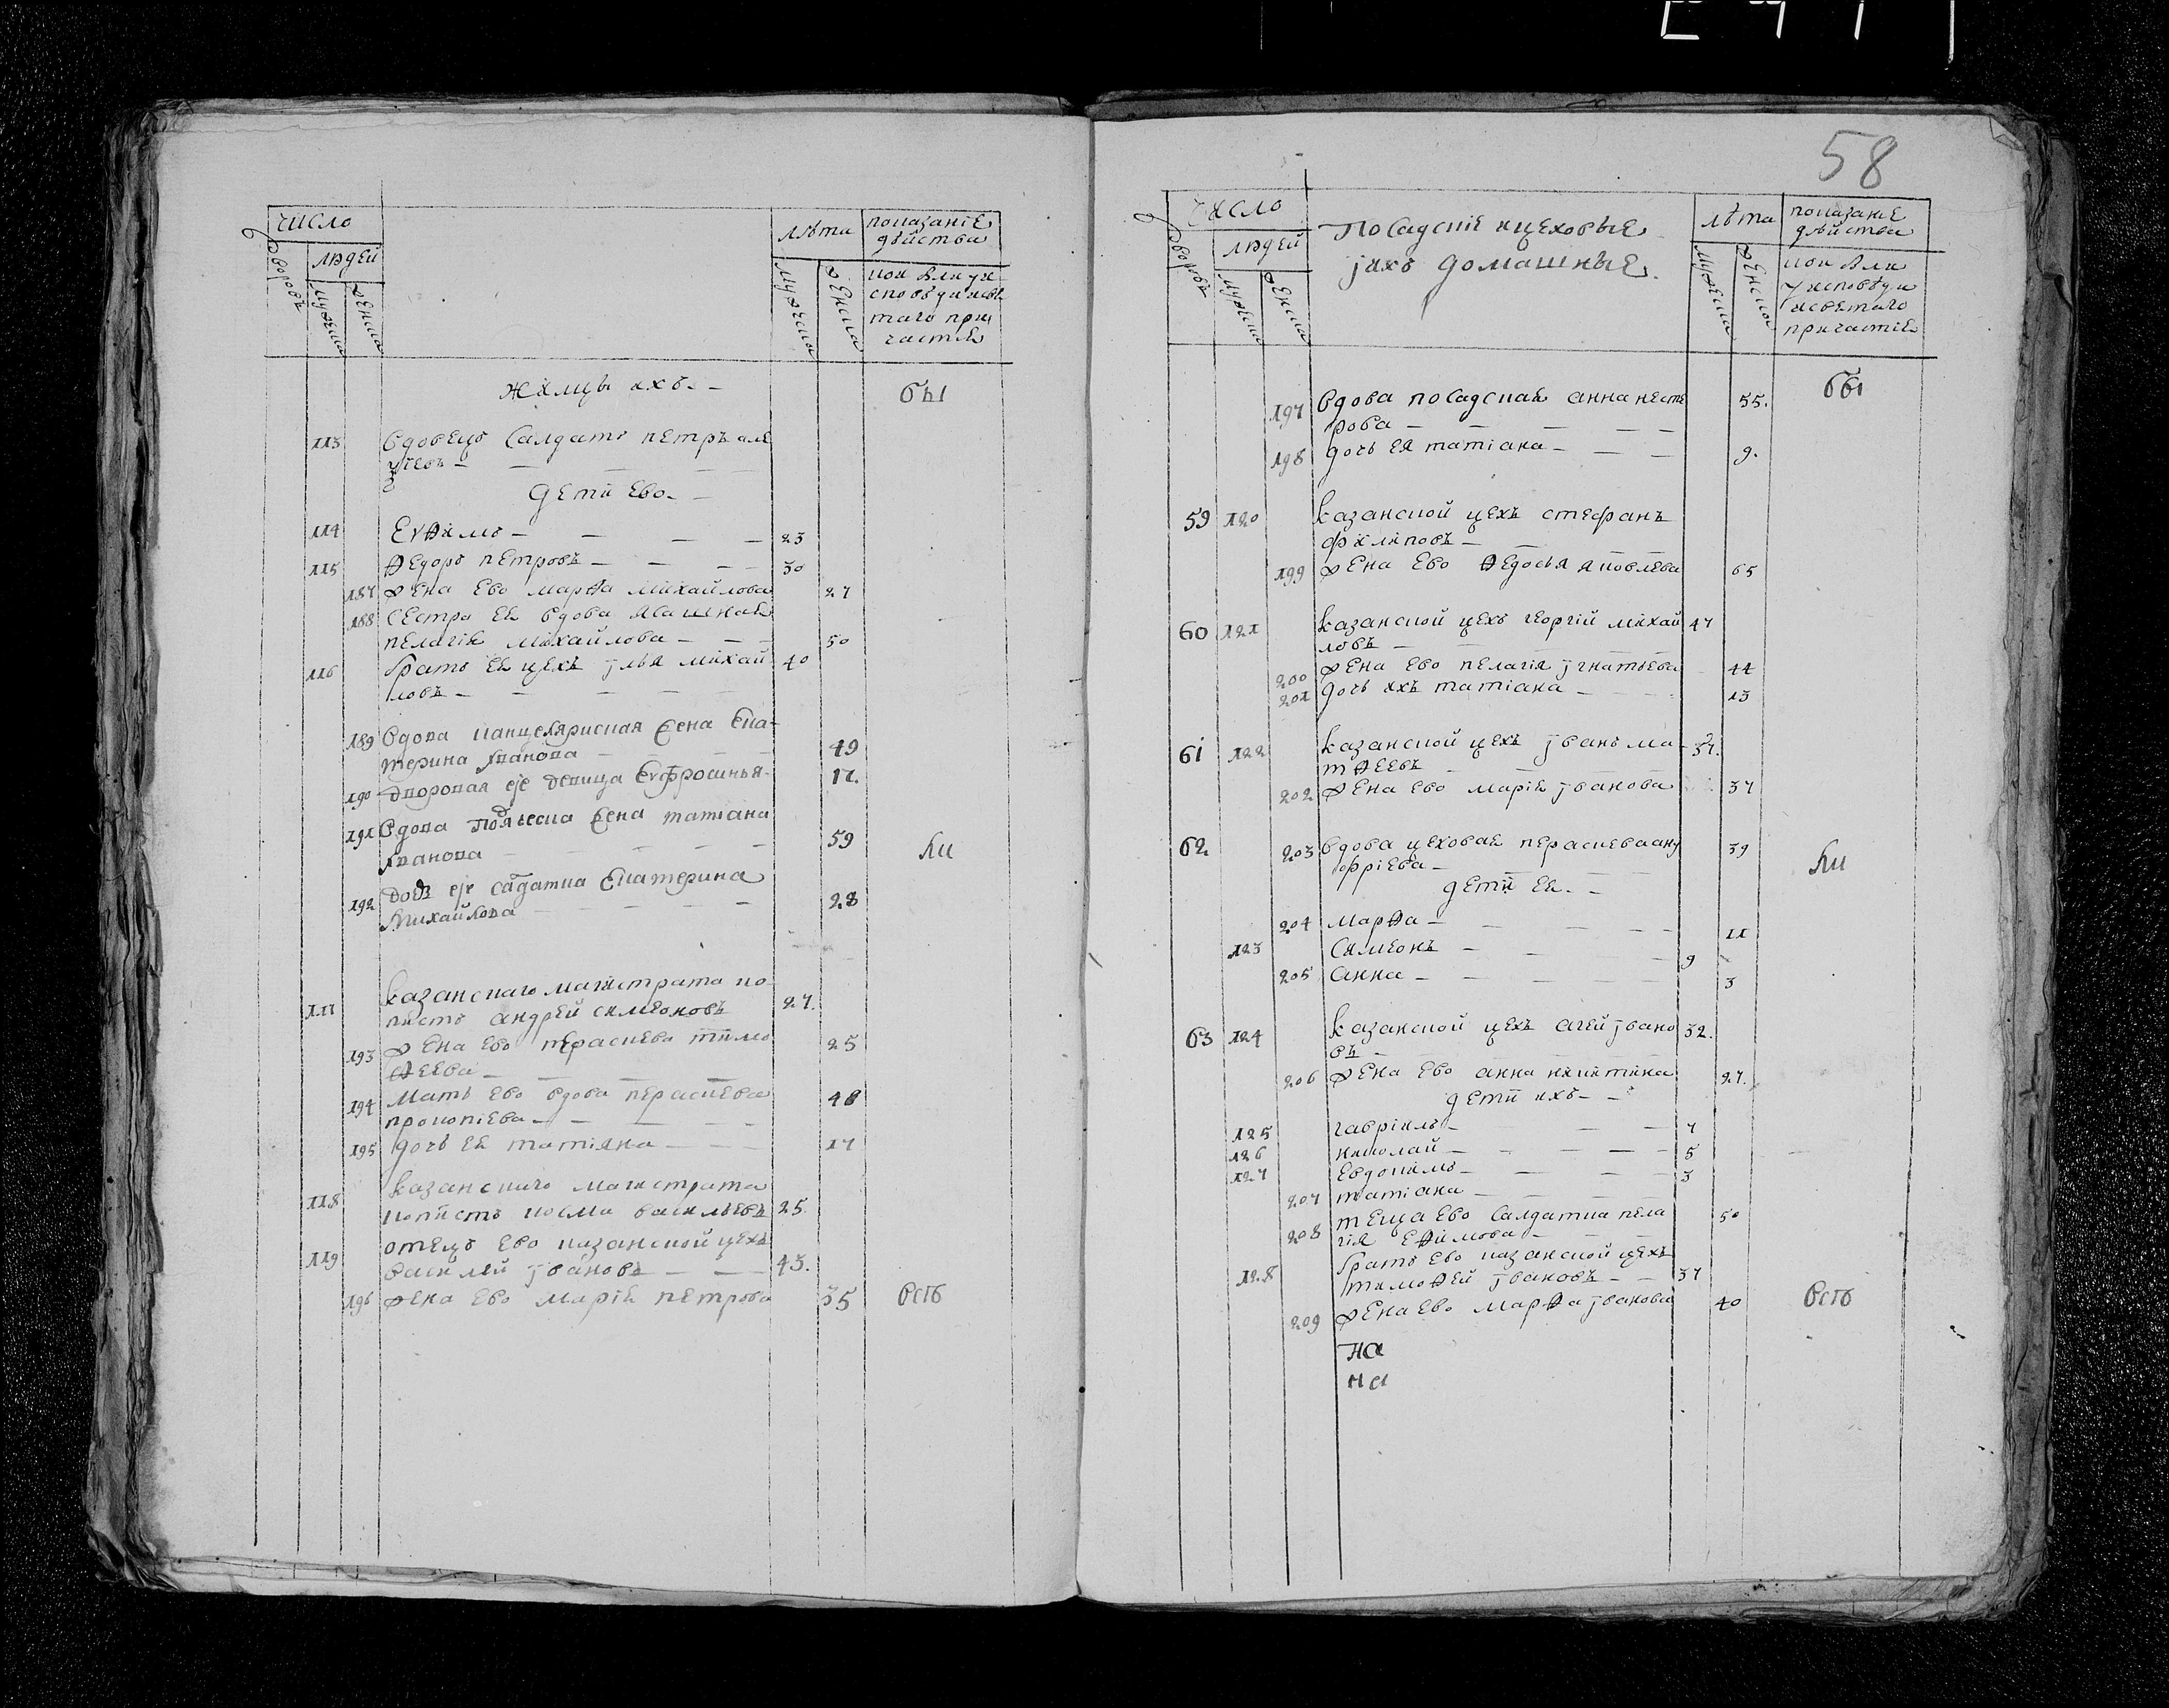 число
дворовъ
людей
мужеска
женска
лѣта
мужеска
женска
показанїе
дѣйства
кои были у и
сповѣди и свѧ
таго при
частїѧ
Жилцы ихъ. –
бы
113 вдовецъ салдатъ петръ але
ѯѣевъ –
дети ево –
114 Еѵѳимъ – 23
115 ѳедоръ петровъ – 30
187 жена ево марѳа михайлова 27
188 сестра еѧ вдова ясашнаѧ
пелагїѧ михайлова – 50
116 братъ еѧ цехъ їлья михай 40
ловъ –
189 вдова канцеляриская жена ека-
терина иванова 49
190 дворовая еѧ девица Еѵфросинья 17.
191 вдова подъяческа жена татиана
иванова 59
ли
192 дочь еѧ салдатка Екатерина
михайлова 28
117 казанскаго магистрата ко
пистъ андрей симеоновъ 27.
193 жена ево пераскева тимо 25
ѳеева –
194 мать ево вдова пераскева 48
прокопїева –
195 дочь еѧ татияна – 17
118 казанскаго магистрата
копистъ косма васильевъ 25
119 отецъ ево казанской цехъ
василей ївановъ – 43.
196 жена ево марїѧ петрова 35
всѣ
58
число
дворовъ
людей
мужеска
женска
Посадскїе и цеховые
їихъ домашные.
лѣта
мужеска
женска
показанїе
дѣйства
кои были
у исповѣди
и светаго
причастїѧ
197 вдова посадскаѧ анна несте 55.
рова –
бы
198 дочь ея татїана – 9.
59 120 казанской цехъ стефанъ
филиповъ –
199 жена ево ѳедосья яковлева 65
60 121 казанской цехъ георгїй михай 47
ловъ –
200 жена ево пелагїя їгнатьева 44
201 дочь ихъ татїана – 13
61 122 казанской цехъ їванъ ма- 37.
тѳеевъ
202 жена ево марїѧ їванова 37
62 203 вдова цеховаѧ пераскева ану 39
фрїева –
ли
дети еѧ. –
204 марѳа – 11
123 симеонъ – 9
205 анна – 3
63 124 казанской цехъ агей ївано 32.
въ –
206 жена ево анна никитина 27.
дети ихъ –
125 гаврїилъ – 7
126 николай – 5
127 Евдокимъ – 3
207 татїана –
208 теща ево салдатка пела 50
гїя Еѳимова –
128 братъ ево казанской цехъ
тимоѳей ївановъ – 37
209 жена ево марѳа їванова 40
всѣ
на
на